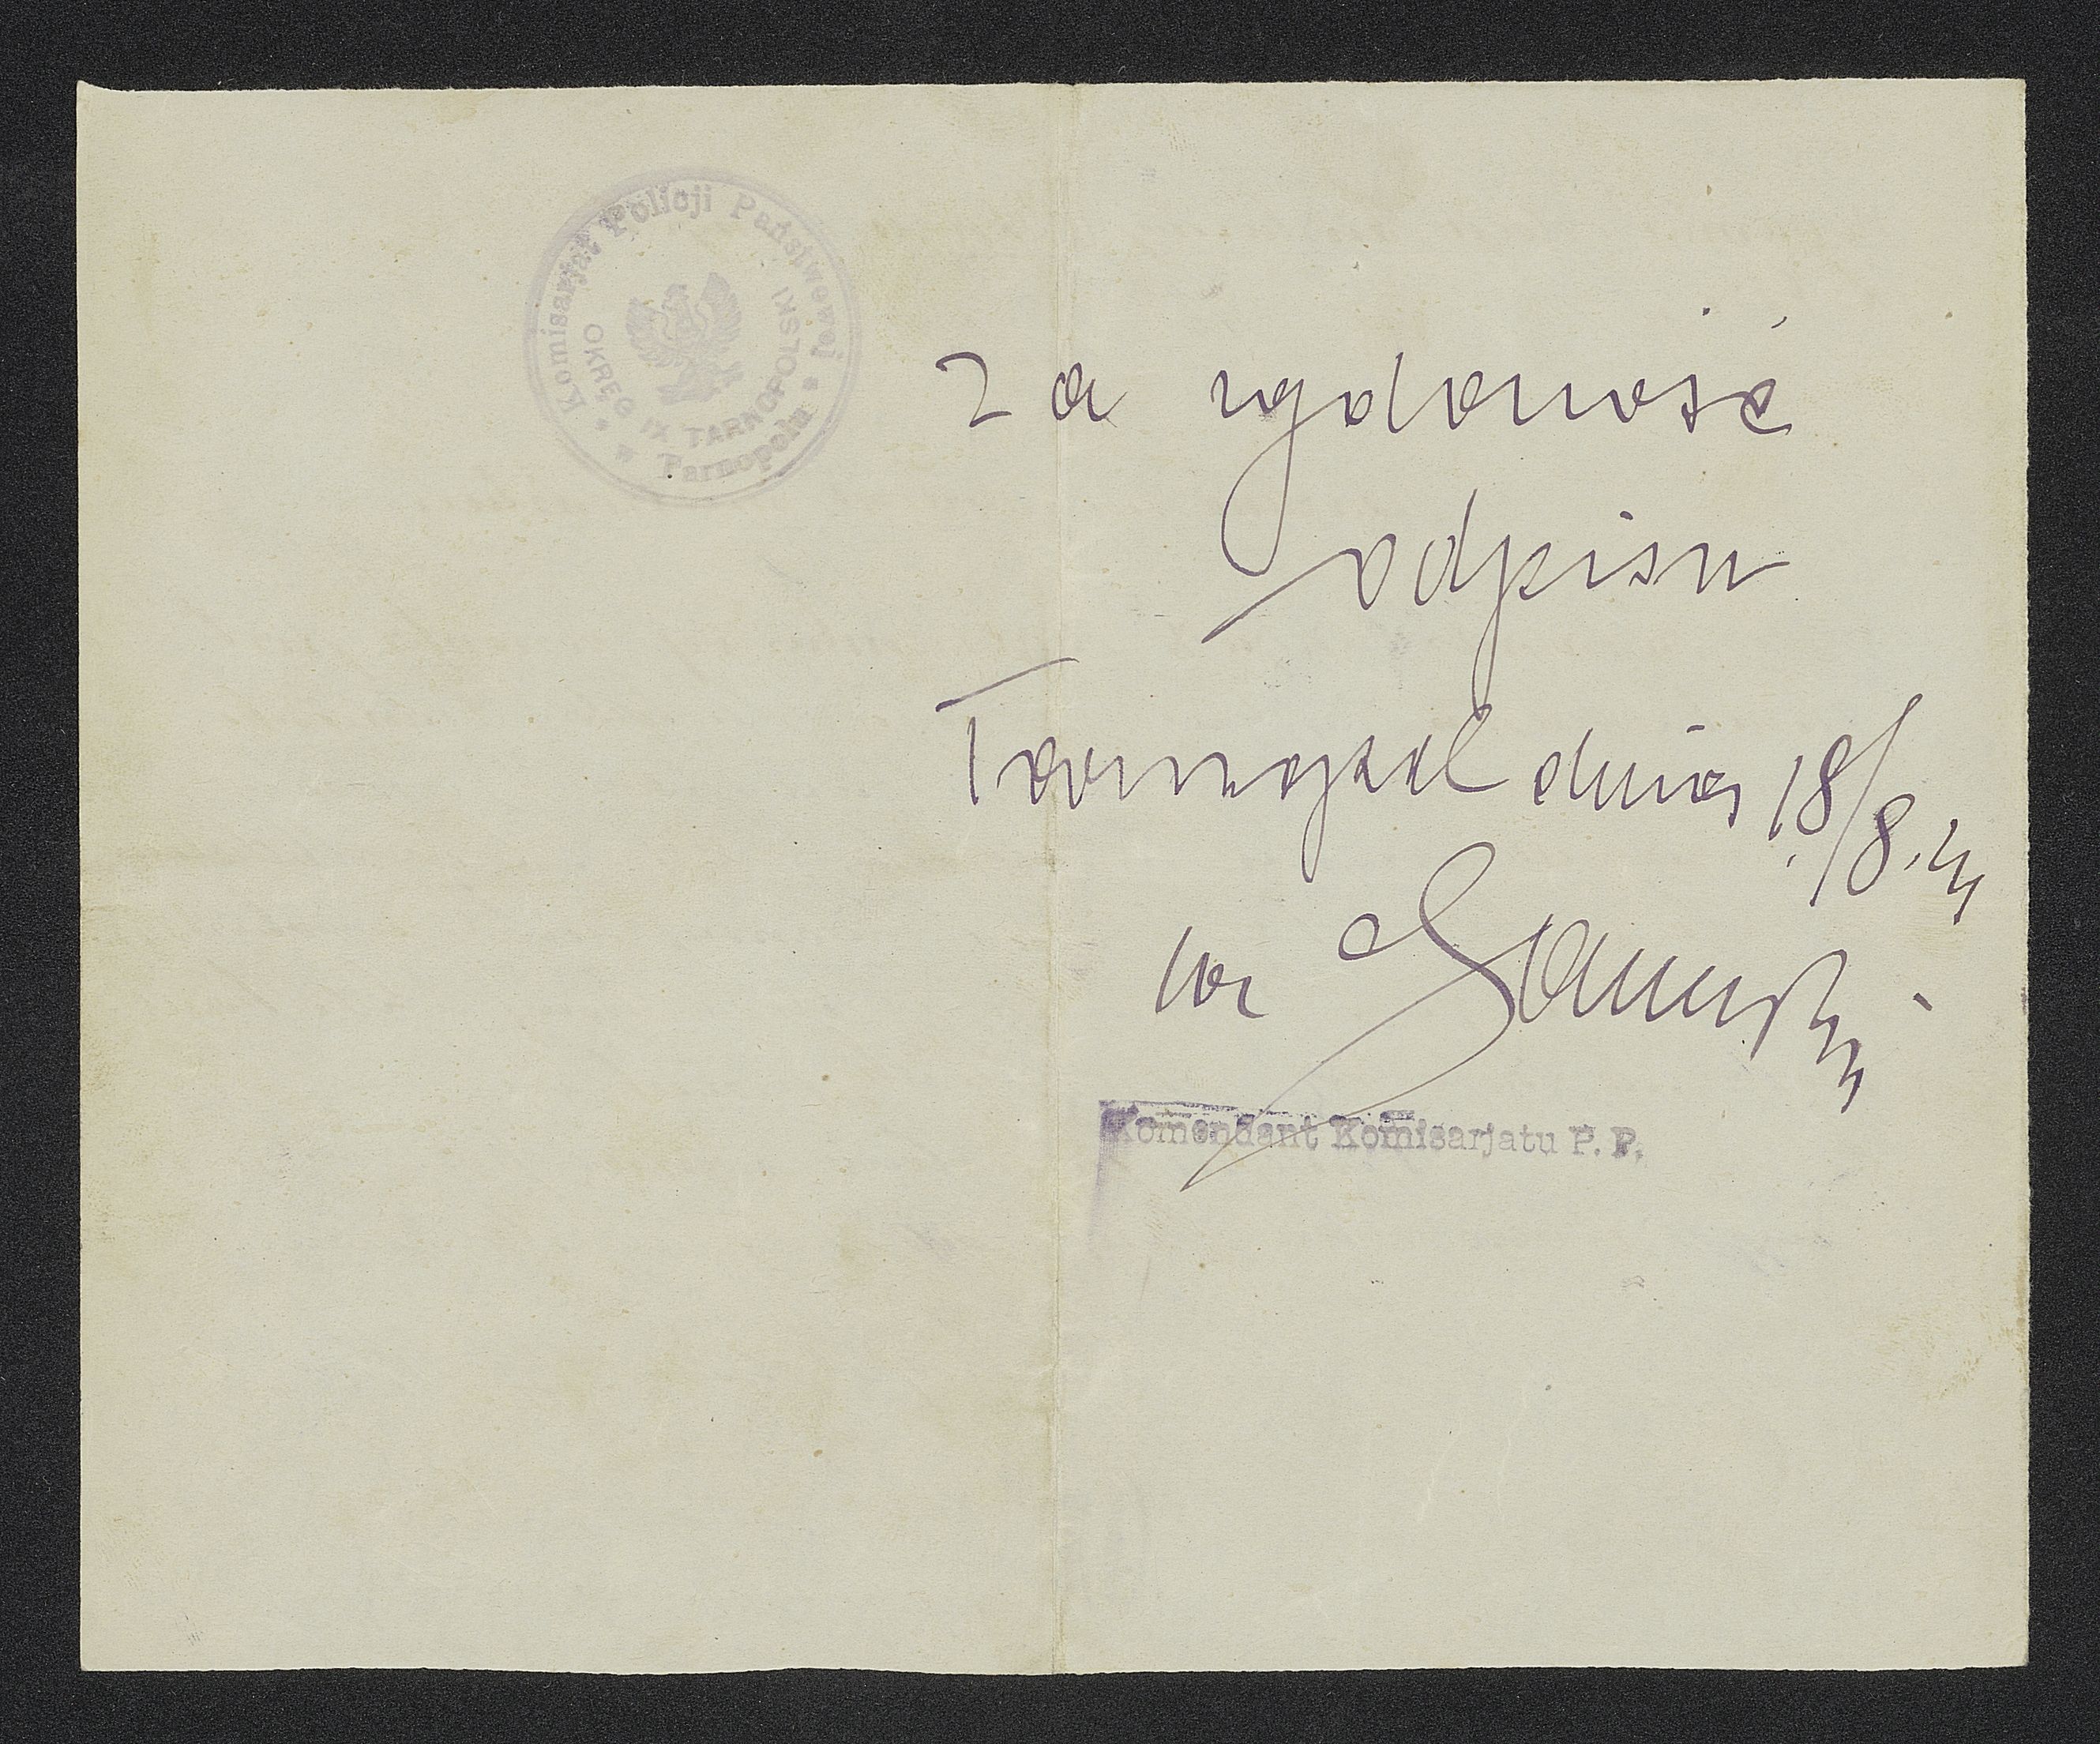 Komisarjat Policji Państwowej
OKRĘG IX TARNOPOLSKI
Tarnopolu
Za zgodność
odpisu
Tarnopol dnia 18/8.
Komendant Komisarjatu P. P.